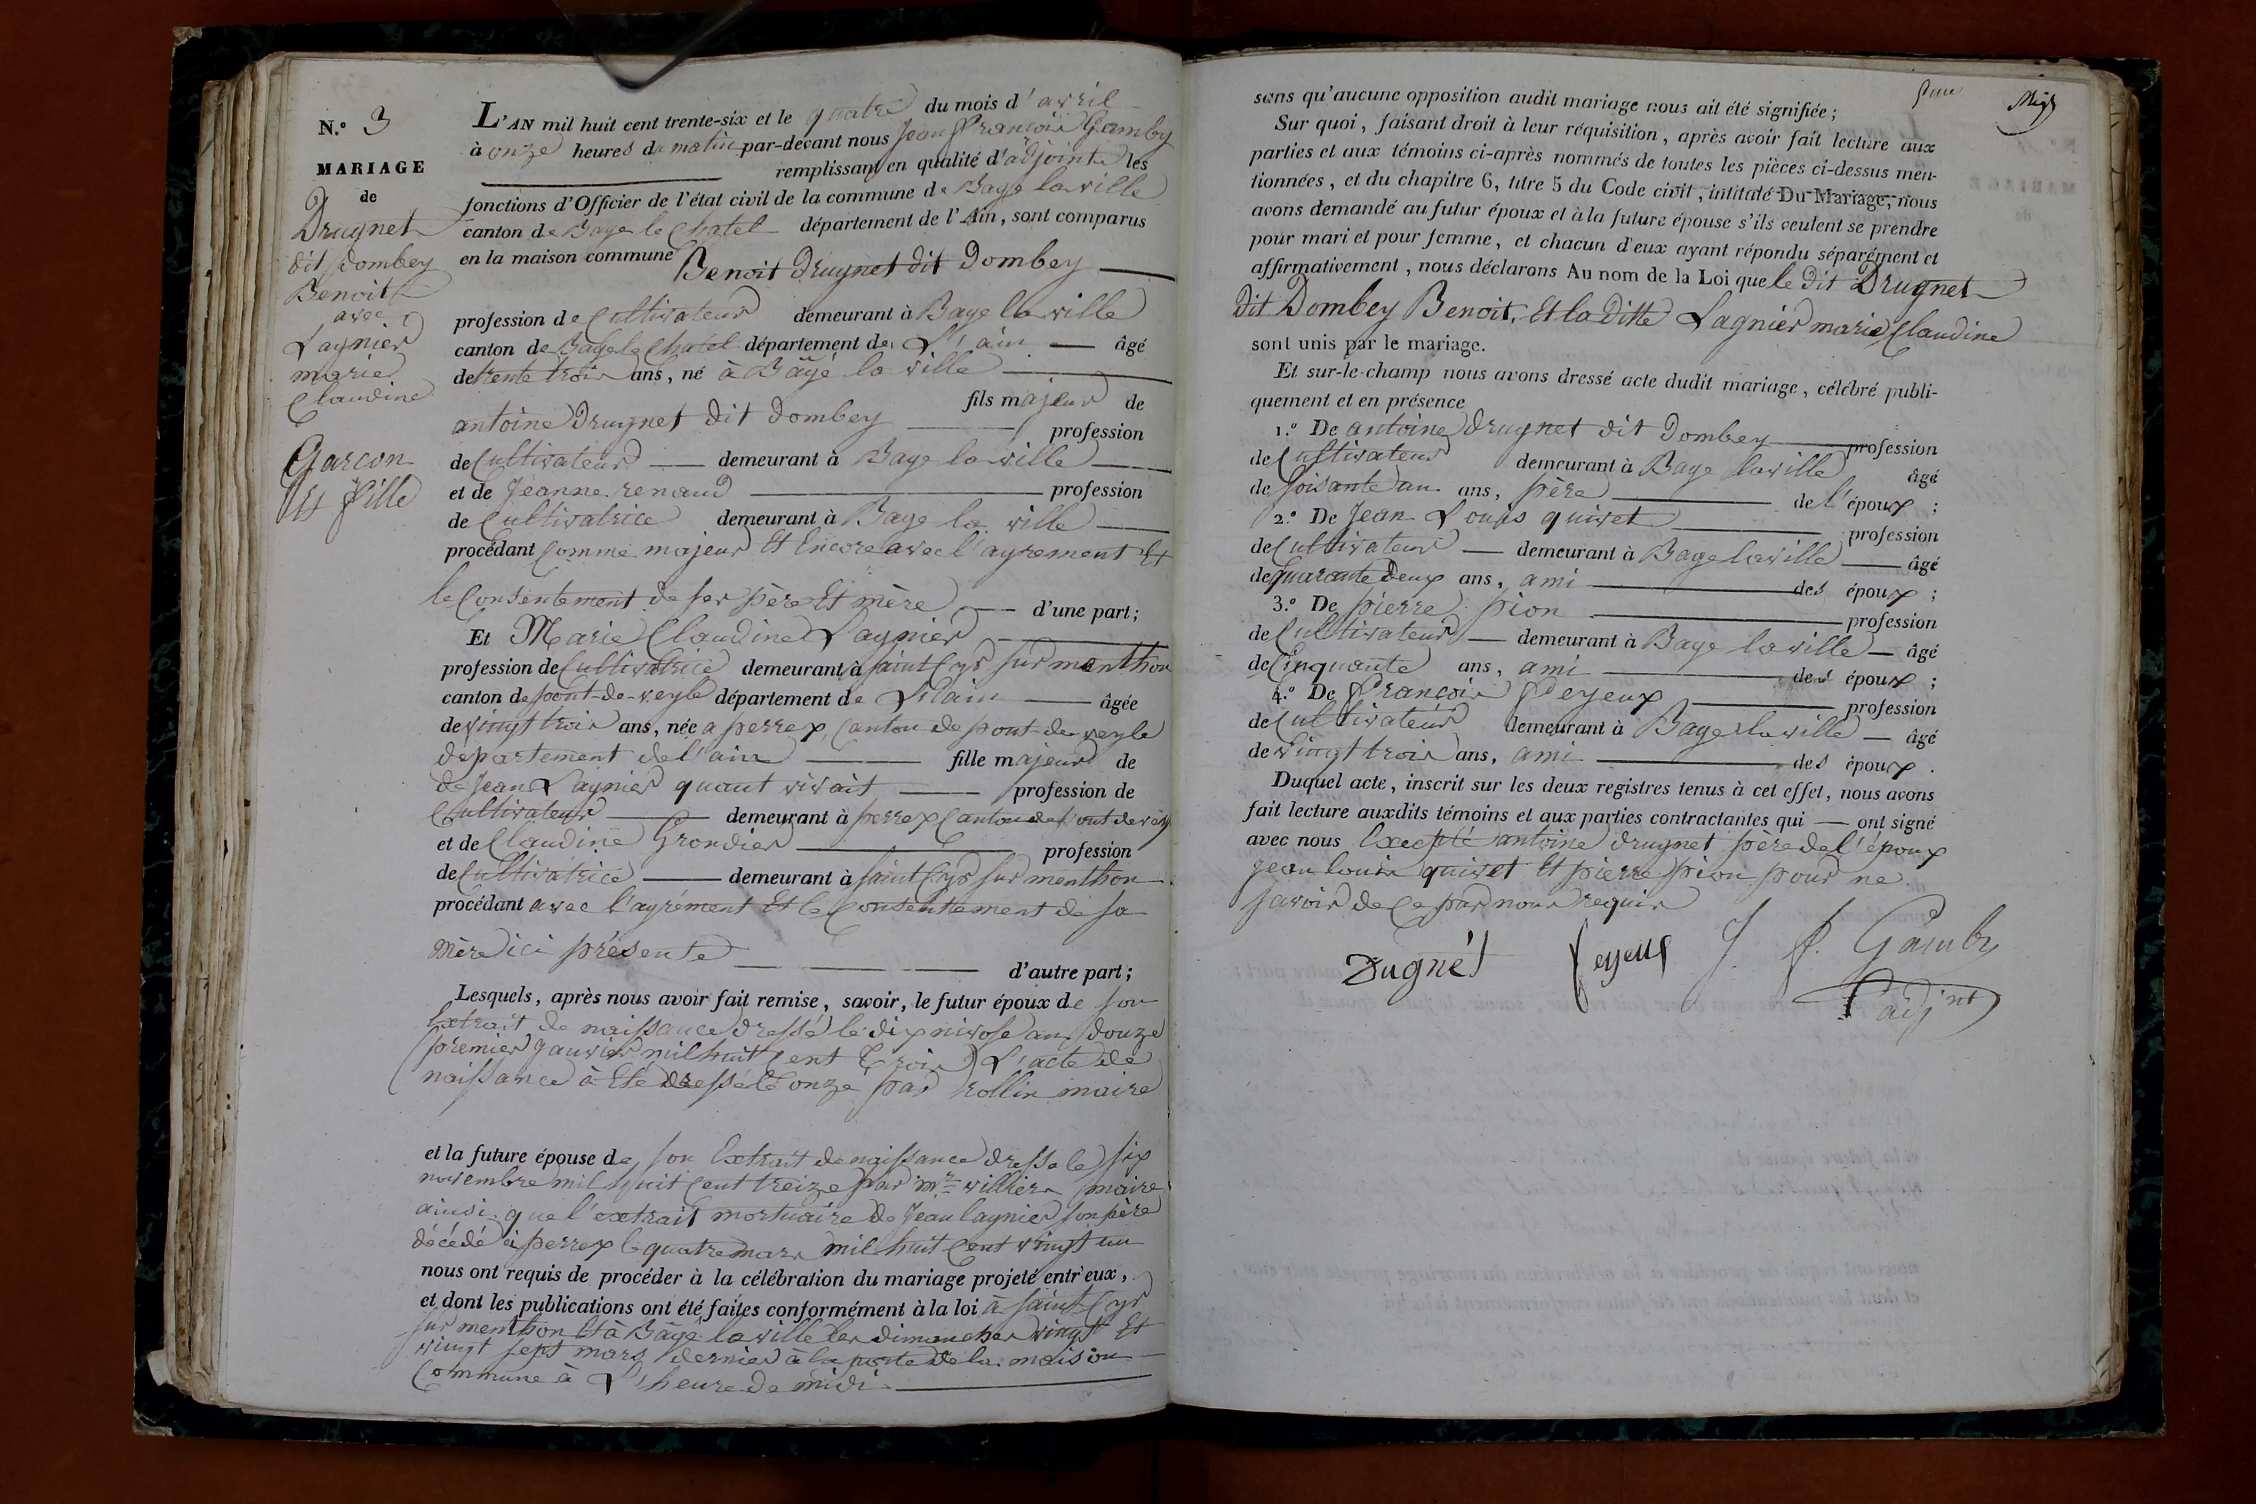 N.º 3
MARIAGE
de
Drugnet
dit Dombey
Benoit
avec
Lagnier
marie
Claudine
Garcon
Et fille
L'AN mil huit cent trente-six et le quatre du mois d'avril
à onze heures du matin par-devant nous Jean François Gamby
remplissant en qualité d'adjoint les
fonctions d'Officier de l'état civil de la commune de Bage la ville
canton de Bage le Chatel département de l'Ain, sont comparus
en la maison commune Benoit Drugnet dit Dombey
profession de Cultivateur demeurant à Bage la ville
canton de Bage le Chatel département de L'ain âgé
de trente trois ans, né à Bâgé la ville
fils majeur de
antoine Drugnet dit dombey profession
de Cultivateur demeurant à Bage la ville
et de Jeanne renaud profession
de Cultivatrice demeurant à Bage la ville
procédant Comme majeur Et Encore avec l'agrement Et
le Consentement de ses père Et mère d'une part;
Et Marie Claudine Lagnier
profession de Cultivatrice demeurant à saint Cyr sur menthon
canton de pont-de-veyle département de L'ain âgée
de vingt trois ans, née a perrex, Canton de pont-de-veyle
departement de l'ain fille majeur de
de Jean Lagnier quant vivait profession de
Cultivateur demeurant à perrex Canton de pont de veyle
et de Claudine Grondier profession
de Cultivatrice demeurant à saint Cyr sur menthon
procédant avec l'agrément Et le Consentement de sa
mère ici présente d'autre part;
Lesquels, après nous avoir fait remise, savoir, le futur époux de son
Extrait de naissance dressé le dix nivose an douze
(premier janvier mil huit Cent trois) L'acte de
naissance à Eté dressé le onze par rollin maire
et la future épouse de son Extrait de naissance dressé le six
novembre mil huit Cent treize par mr villier maire
ainsi que l'extrait mortuaire de Jean lagnier son père
décédé à perrex le quatre mars mil huit Cent vingt un
nous ont requis de procéder à la célébration du mariage projeté entr'eux,
et dont les publications ont été faites conformément à la loi à saint Cyr
sur menthon Et à Bâgé la ville les dimanches vingt Et
vingt sept mars dernier à la porte de la maison
Commune à L'heure de midi
sans qu'aucune opposition audit mariage nous ait été signifiée;
Sur quoi, faisant droit à leur réquisition, après avoir fait lecture aux
parties et aux témoins ci-après nommés de toutes les pièces ci-dessus men-
tionnées, et du chapitre 6, titre 5 du Code civil, intitulé Du Mariage, nous
avons demandé au futur époux et à la future épouse s'ils veulent se prendre
pour mari et pour femme, et chacun d'eux ayant répondu séparément et
affirmativement, nous déclarons Au nom de la Loi que le dit Drugnet
dit Dombey Benoit, Et la ditte Lagnier marie Claudine
sont unis par le mariage.
Et sur-le-champ nous avons dressé acte dudit mariage, célébré publi-
quement et en présence
1.º De antoine drugnet dit Dombey profession
de Cultivateur demeurant à Bage la ville âgé
de soisante un ans, père de l'époux;
2.º De Jean Louis quivet profession
de Cultivateur demeurant à Bage la ville âgé
de quarante deux ans, ami des époux;
3.º De pierre pion profession
de Cultivateur demeurant à Bage la ville âgé
de Cinquante ans, ami des époux;
4.º De François feyeux profession
de Cultivateur demeurant à Bage la ville âgé
de vingt trois ans, ami des époux.
Duquel acte, inscrit sur les deux registres tenus à cet effet, nous avons
fait lecture auxdits témoins et aux parties contractantes qui ont signé
avec nous Excepté antoine drugnet père de l'époux
jean louis quivet Et pierre pion pour ne
savoir de Ce par nous requis
Dugnét feyeux J. f. Gamby
adjnt